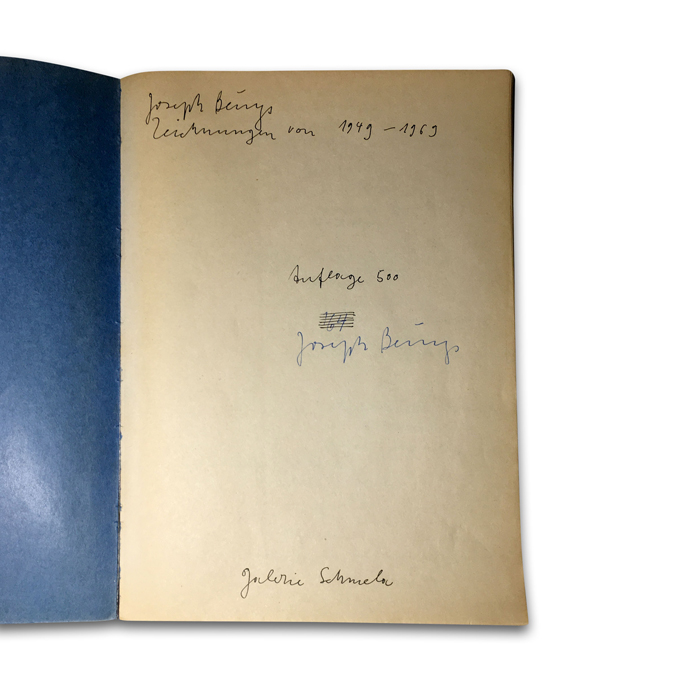 Joseph Beuys
Zeichnungen von 1949 – 1969
Auflage 500
164
Joseph Beuys
Galerie Schmela